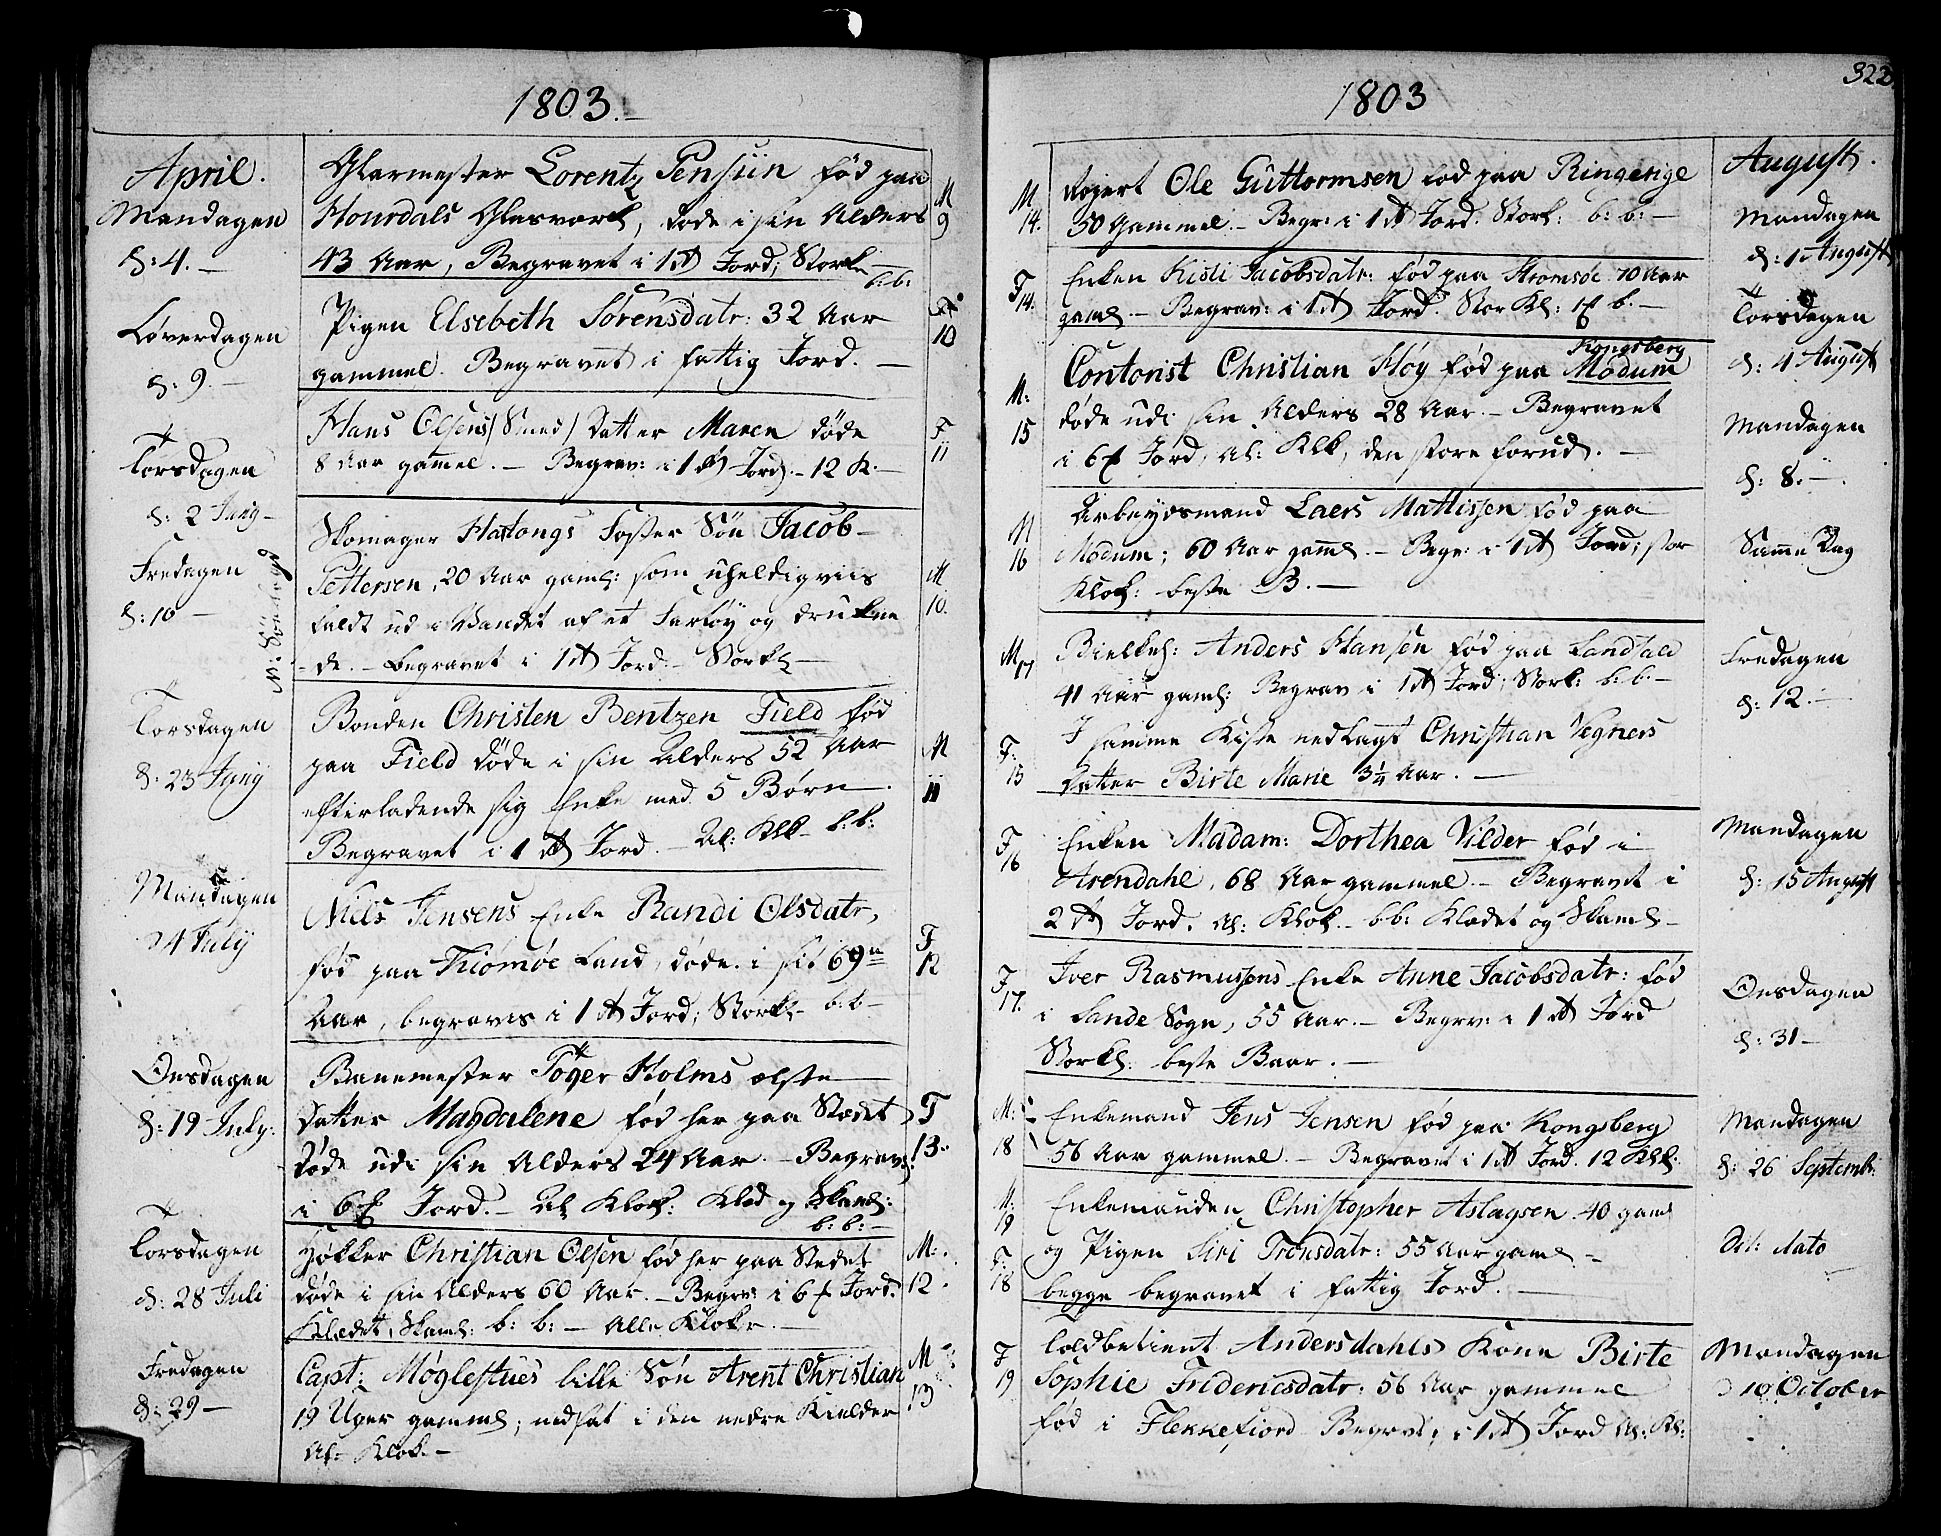 1803.
April.
Mandagen
d: 4. –
Glarmester Lorentz Pensiin fød paa
Hourdals Glasværk, døde i sin Alders
43 Aar, Begravet i 1 rd Jord; Stork.
b:b:
M
9
Løverdagen
d: 9. –
Pigen Elsebeth Sørensdatr: 32 Aar
gammel. Begravet i fattig Jord. –
F
10
Torsdagen
d: 2 Juny –
Hans Olsens /Smed/ Datter Maren døde
8 Aar gamel. – Begrav: i 1 rd Jord. – 12 K. –
F
11
Fredagen
d: 10 –
Skomager Hattongs Foster Søn Jacob
Pettersen, 20 Aar gaml: som uheldigviis
faldt ud i Vandet af et Fartøy og drukne
– de. – begravet i 1 rd Jord. – Stork. –
M
10.
Torsdagen
d: 23 Juny
Bonden Christen Bentzen Field fød
paa Field døde i sin Alders 52 Aar
efterladende sig Enke med 5 Børn –
Begravet i 1 rd Jord. – Al: Klk – b:b:
M
11
Mandagen
4 July
Niels Jensens Enke Randi Olsdatr,
fød paa Tiømøe Land, døde i sit 69
Aar, begraves i 1 rd Jord; Stork. b:b –
F
12
Onsdagen
d: 19 July:
Banemester Tøger Holms ælste
Datter Magdalene fød her paa Stædet
døde udi sin Alders 24 Aar. – Begrav:
i 6 Jord. – Al Klok: Klæd og Skaml:
b: b: –
F
13.
Torsdagen
d: 28 Juli
Høkker Christian Olsen fød her paa Stedet
døde i sin Alders 60 Aar. – Begrv: i 6 Jord.
Klædet, Skaml: b: b: – Alle Klokr. –
M:
12
Fredagen
d: 29 –
Capt: Møglestues lille Søn Arent Christian
19 Uger gamml; nedsat i den nedre Kielder
Al: Klok. –
M
13
1803
322.
M
14.
Ole Guttormsen fød paa Ringerige
50 gammel. – Begr: i 1 rd Jord. Stork: b: b: –
August.
Mandagen
d: 1 August
F
14.
Enken Kisti Jacobsdatr: fød paa Strømsøe 70 Aar
gaml. – Begrav: i 1 rd Jord. Stor Kl: b: –
Torsdagen
d: 4 August
Kongsberg
M:
15
Contorist Christian Høy fød paa Modum
døde udi sin Alders 28 Aar. – Begravet
i 6 Jord, Al: Klk, den store forud. –
Mandagen
d: 8. –
M
16
Arbeydsmand Laers Mattissen fød paa
Modum; 60 Aar gaml. – Begr: i 1 rd Jord; stor
Klok: beste B. –
Samme Dag
M
17
Bielkeh: Anders Hansen fød paa Landfald
41 Aar gaml: Begrav i 1 rd Jord; Stork: b:b. –
Fredagen
d: 12. –
F:
15
I samme Kiste nedlagt Christian Vegners
Datter Birte Marie 3¼ Aar. –
F
16
Enken Madam: Dorthea Vilder fød i
Arendahl, 68 Aar gammel. – Begravet i
2 rd Jord. Al: Klok. – b b: Klædet og Skaml –
Mandagen
d: 15 August
F
17.
Iver Rasmussens Enke Anne Jacobsdatr: fød
i Sande Sogn, 55 Aar. – Begrv: i 1 rd Jord
Storkl: beste Baar. –
Onsdagen
d: 31 –
M:
18
Enkemand Jens Jensen fød paa Kongsberg
56 Aar gammel. – Begravet i 1 rd Jord. 12 Klk:
Mandagen
d: 26 Septemb:
M:
19
Enkemanden Christopher Aslagsen 40 gaml
F:
18
og Pigen Siri Tronsdatr: 55 Aar gaml –
begge begravet i fattig Jord. –
Dito Dato
F
19
Toldbetient Andersdahls Kone Birte
Sophie Fridericsdatr: 56 Aar gammel
fød i Flekkefiord Begrav: i 1 rd Jord Al: Kl:
Mandagen
10 October